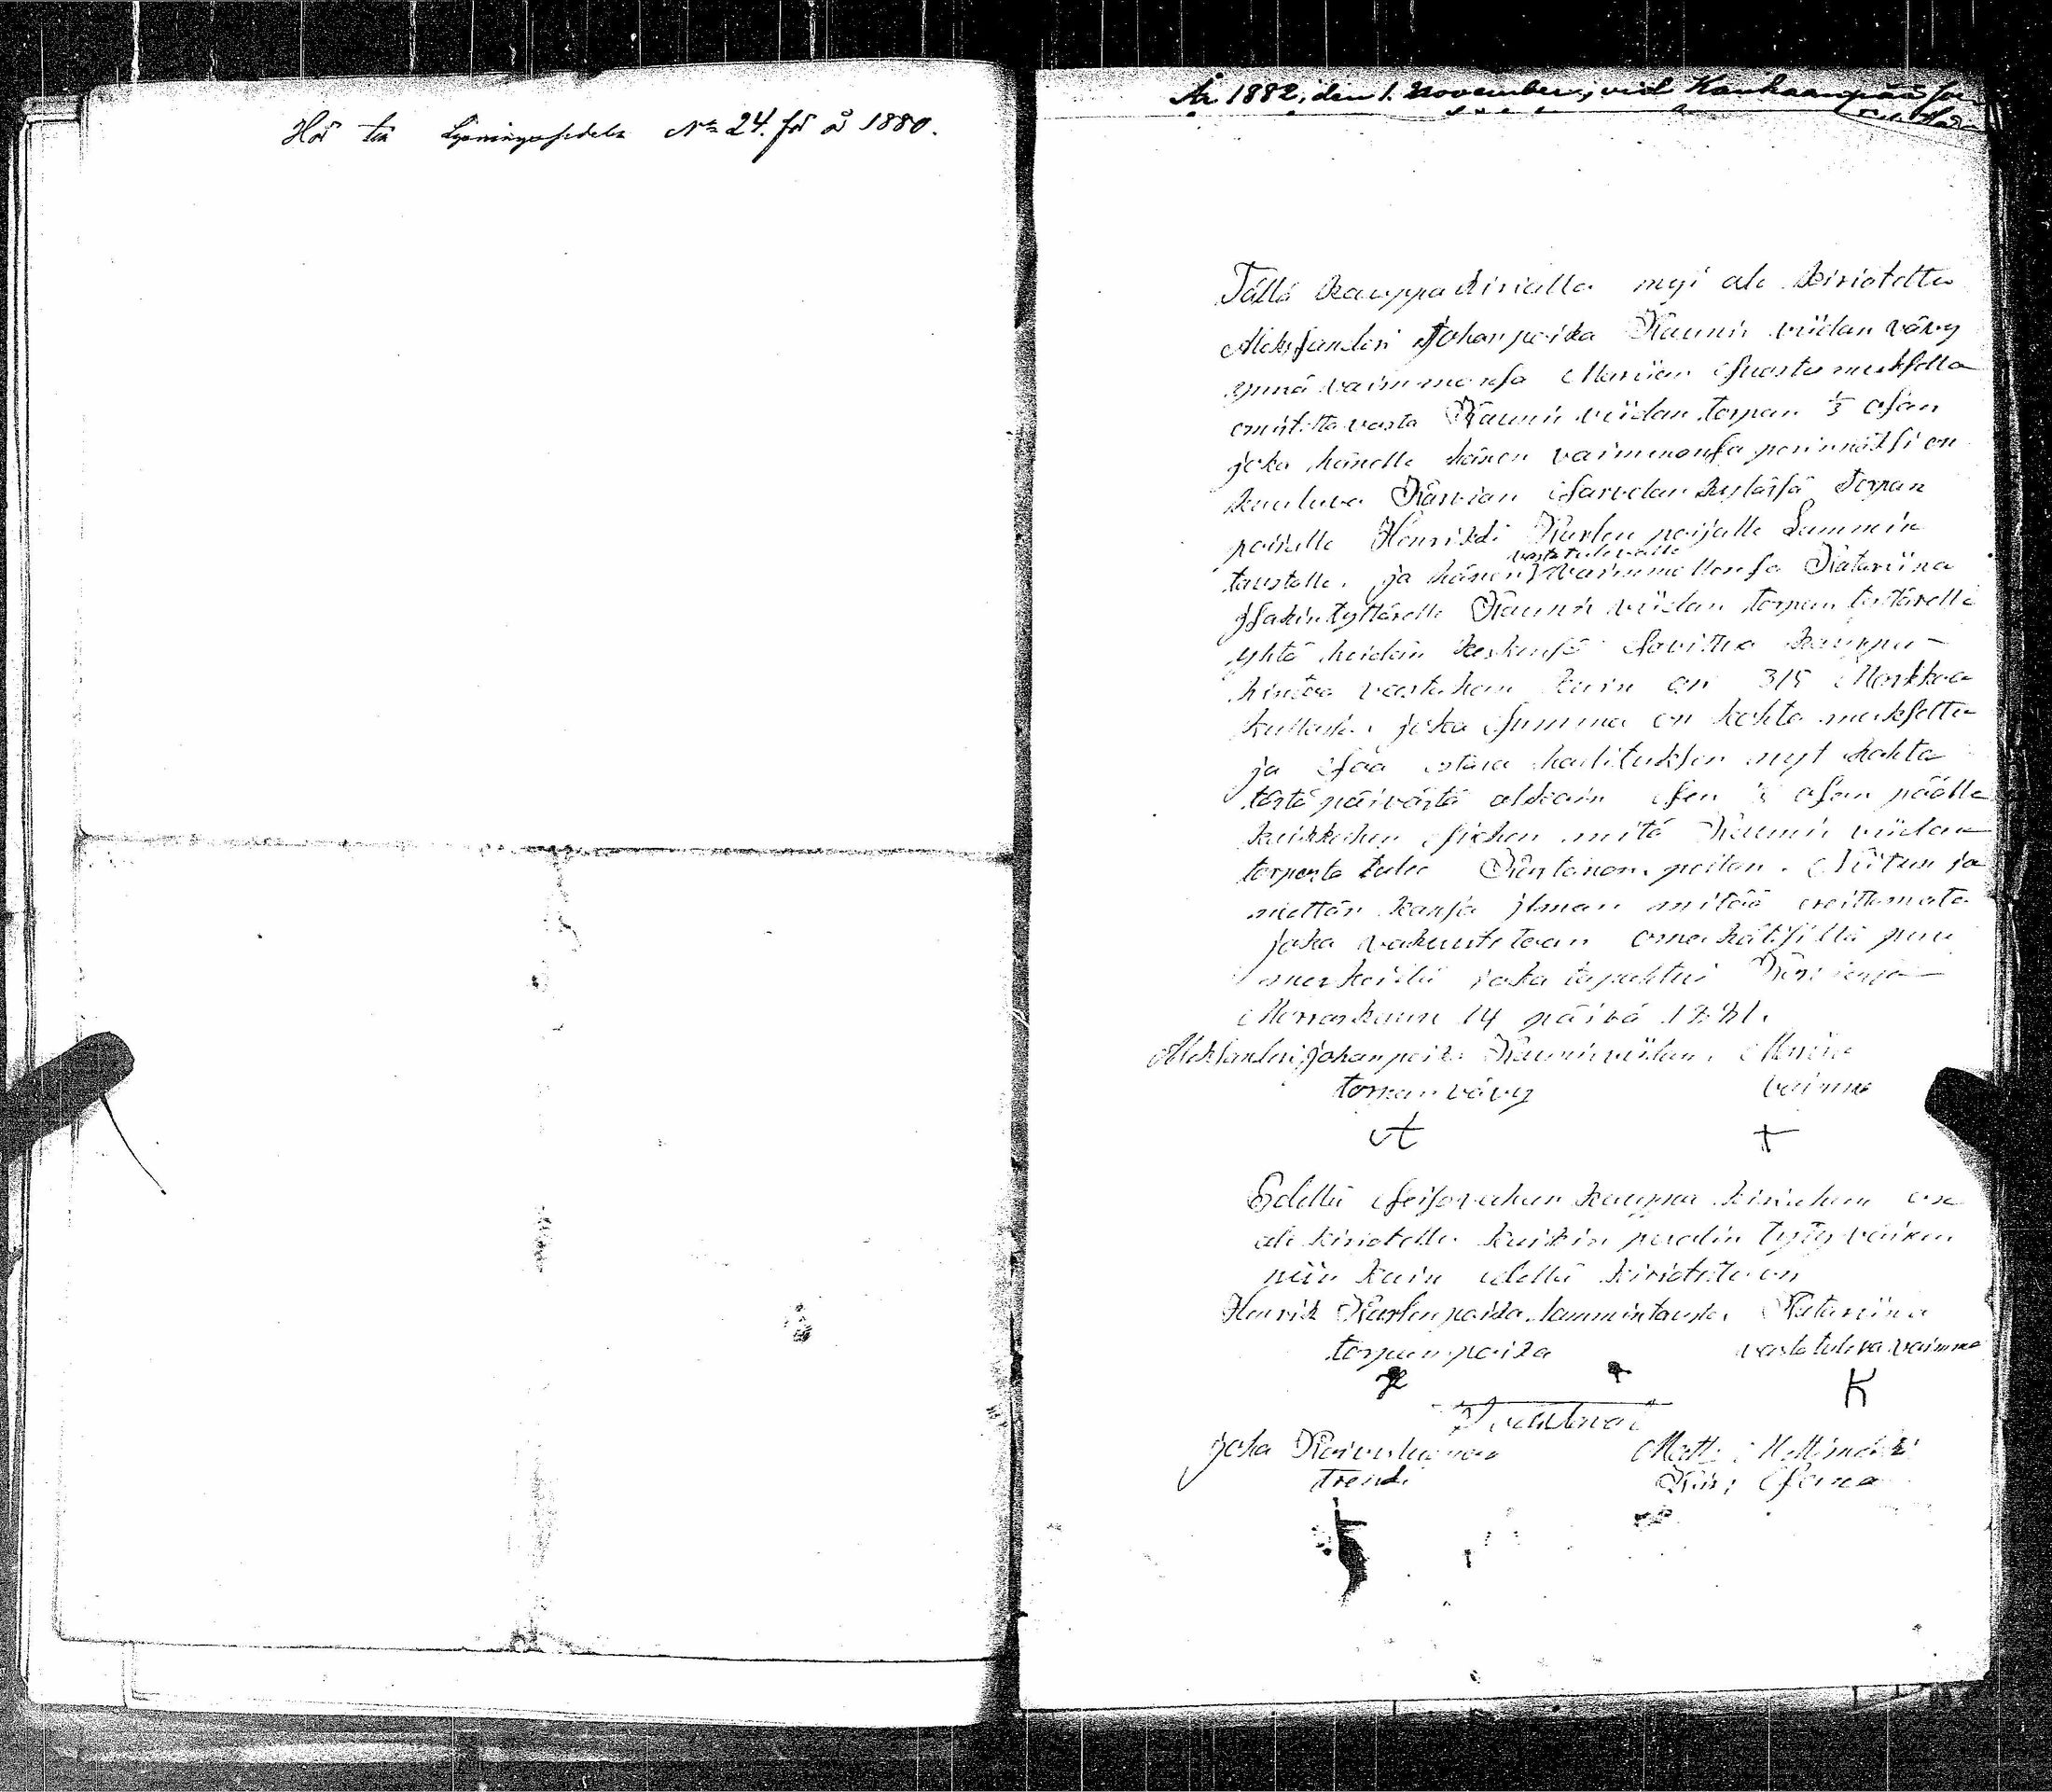 Hör till Lysningssedeln No 24. för år 1880.
År 1882, den 1. November, vid Kankaanpää
Tällä kauppa kirialla myi ale kiriotettu
Aleksanderi Johanpoika Kaunis viidan vävy
ynnä vaimmonsa Mariian suostumuksella
omistettavasta Kaunis viidan torpan ⅓ osan
joka hänelle hänen vaimmonsa perinnöksi on
kuuluva Karvian Sarvelan kylässä torpan
poialle Henrikki Karlen poijalle Lammin
taustalle. ja hänen vastatulevalle vaimmollensa Katariina
Isakin tyttärelle Kaunis viidan torpan tyttärelle
yhtä heidän keskensä sovittua kauppa-
hintaa vastahan kuin on 315 Markkaa
joka summa on kohta maksettu
ja saa ostaia hallituksen nyt kohta
tästä päivästä alkain sen ⅓ osan päälle
kaikkihin siihen mitä Kaunis viidan
torpasta tulee pellon. Niitun ja
mettän kansa ilman mitää eroittamata
joka vakuutetaan omakätisillä puu
merkeillä joka tapahtui
Marraskuun 14 päivä 1881.
Aleksanderi Johanpoika Kaunisviidan. Mariia
torpan vävy vaimmo
+
Edellä seisovahan kauppa kiriahan on
ale kiriotettu kaikin puolin tytyväinen
niin kuin edellä kiriotettu on
Henrik Karlenpoika Lammintausta. Katariina
torpan poika vastatuleva vaimmo
K
Todistavat
Joha
Trendi Matti